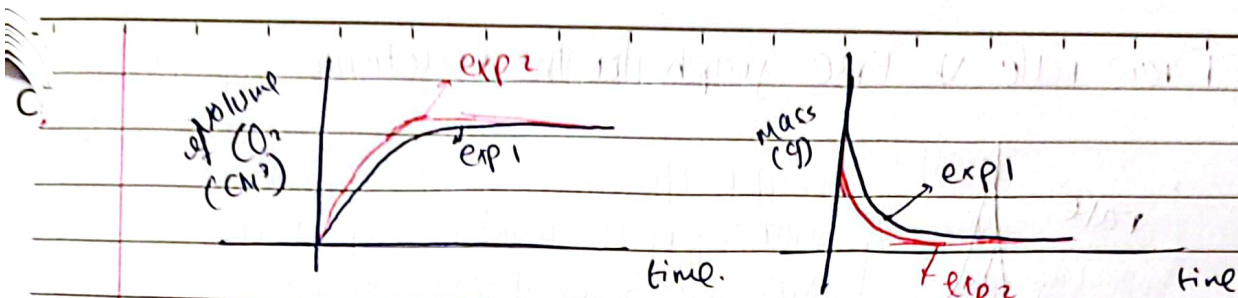 C.
volume
of CO2
(CM³)
exp 2
exp 1
time.
Mass
(g)
exp 1
exp 2
time